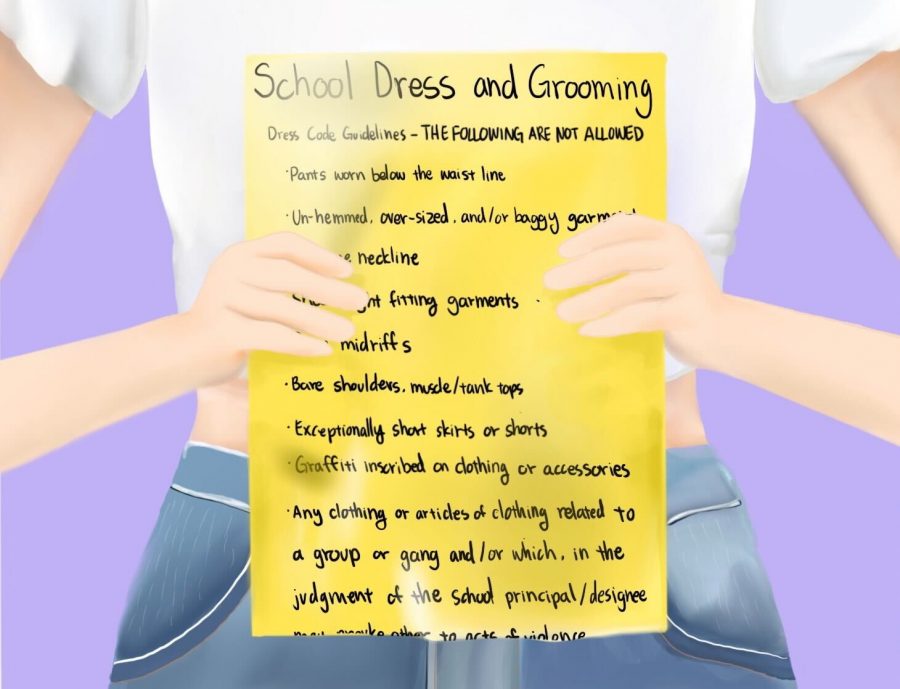 School Dress and Grooming
Dress Code Guidelines - THE FOLLOWING ARE NOT ALLOWED
· Pants worn below the waist line
· Un-hemmed, over-sized, and/or baggy
neckline
fitting garments
midriffs
· Bare shoulders, muscle/tank tops
· Exceptionally short skirts or shorts
· Graffiti inscribed on clothing or accessories
· Any clothing or articles of clothing related to
a group or gang and/or which, in the
judgment of the school principal/designee
to acts of violence